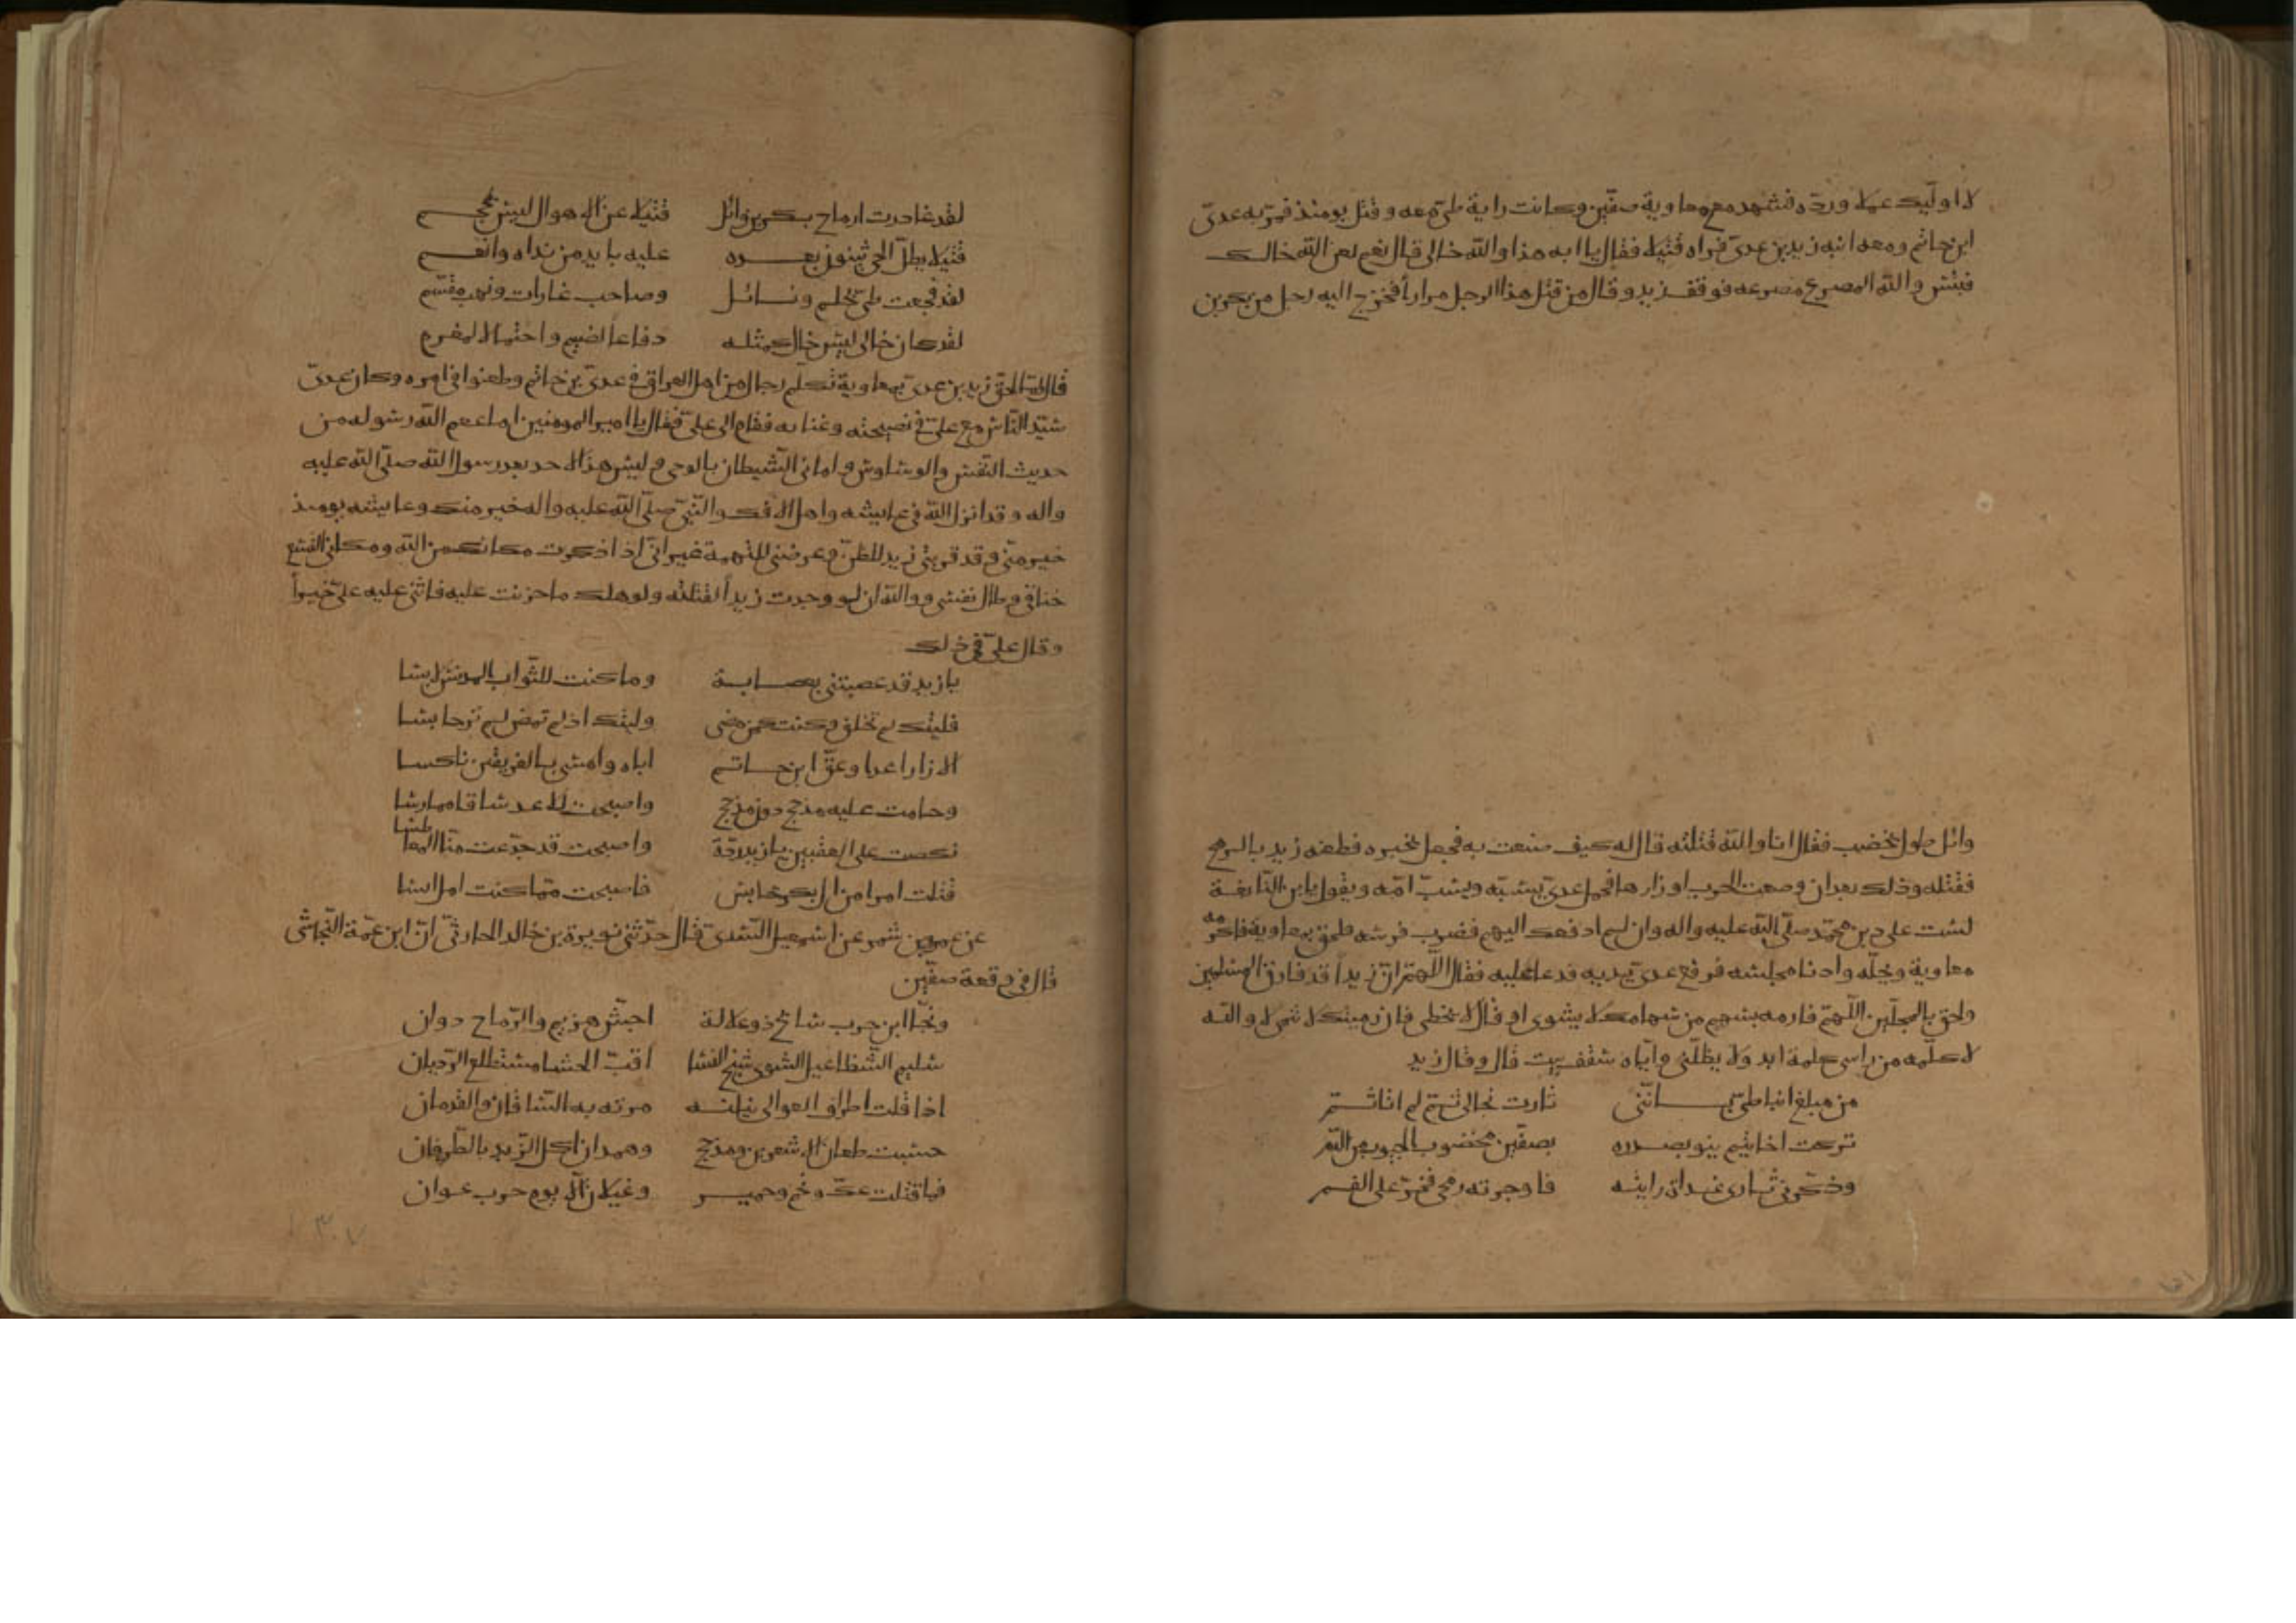 لا اوليك عملا وردّه فشهد مع معاوية صفّين وكانت راية طيّ معه وقتل يومئذ فمرّ به عديّ
ابن حاتم ومعه ابنه زيد بن عديّ فراه قتيلا فقال يا ابه هذا والله خالي قال نعم لعن الله خالك
فبئس والله المصرع مصرعه فوقف زيد وقال من قتل هذا الرجل مرارا فخرج اليه رجل من بكر بن
وائل طول يخضب فقال انا والله قتلته قال له كيف صنعت به فجعل يخبره فطعنه زيد بالرمح
فقتله وذلك بعد ان وضعت الحرب اوزارها فحمل عديّ يسبّه ويسبّ امّه ويقول يابن
لست على دين محمّد صلّى الله عليه واله وان لم ادفعك اليهم فضرب فرسه فلحق بمعاوية فاكرمه
معاوية وادنا مجلسه فرفع عديّ يديه فدعا عليه فقال اللّهمّ انّ زيدا قد فارق المسلمين
ولحق بالمحلّين اللّهمّ فارمه بسهم من سهامك لا يشوي او قال لا يخطي فان رميتك لا تنمي لا والله
لا كلّمه من راسي كلمة ابد ولا يظلّني وايّاه سقف بيت قال وقال زيد
من مبلغ ابنا طيّ بانّني ثارت بخالي ثم لم اتاثم
تركت اخا بنو بصدره بصفّين مخضوب الجيوب من الدم
وذكّرني ثاري غداة رايته فاوجرته رمحي فخرّ على الفم
لقد غادرت ارماح بكر بن وائل قتيلا عن الاهوال ليس بمحجم
قتيلا يظلّ الحي يثنون بعده عليه بايد من نداه وانعم
لقد فجعت طيّ بحلم ونائل وصاحب غارات ونهب مقسم
لقد كان خالي ليس خال كمثله دفاعا لضيم واحتمالا لمغرم
قال لمّا لحق زيد بن عديّ بمعاوية تكلّم رجال من اهل العراق في عديّ بن حاتم وطعنوا في امره وكان عديّ
سيّد النّاس مع عليّ في نصيحته وغنائه فقام الى عليّ فقال يا امير المومنين اما عصم الله رسوله من
حديث النّفس والوساوس واماني الشّيطان بالوحي وليس هذا لاحد بعد رسول الله صلّى الله عليه
واله وقد انزل الله في عايشه واهل الافك والنّبيّ صلّى الله عليه واله خير منك وعايشه يومئذ
خير منّي وقد قرّبني زيد للظنّ وعرضني للتهمة غير انّي اذا ذكرت مكانك من الله ومكاني اتّسع
خناقي وطال نفسي ووالله ان لو وجدت زيدا لقتلته ولو هلك ما حزنت عليه فاثنى عليه عليّ خيرا
وقال عليّ في ذلك
يا زيد قد عصبتني بعصابة وما كنت للثّواب المدنّس لابسا
فليتك لم تخلق وكنت كمن مضى وليتك اذ لم تمض لم تر حابسا
الا زار اعدا وعقّ ابن حاتم اباه وامسى بالفريقين ناكسا
وحامت عليه مذحج دون مذحج واصبحت للاعداء ساقا ممارسا
نكصت على العقبين يا زيد ردّة واصبحت قد جدّعت منّا المعاطسا
قتلت امرا من ال بكر بحابس فاصبحت ممّا كنت امل ايسا
عن عمرو بن شمر عن اسمعيل السّدّيّ قال حدّثني نويرة بن خالد الحارثيّ انّ ابن عمّه النّجاشي
قال في وقعة صفّين
ونجّا ابن حرب سابح ذو علالة اجشّ هزيم والرّماح دوان
سليم الشّظا عبل الشوى شنج النسا اقبّ الحشا مستطلع الرّديان
اذا قلت اطراف العوالي ينلنه مرته به السّاقان والقدمان
حسبت طعان الاشعرين ومذحج وهمدان اكل الزّبد بالصّرفان
فما قتلت عكّ ولخم وحمير وغيلان الّا يوم حرب عوان
٣٠٧
١٥١